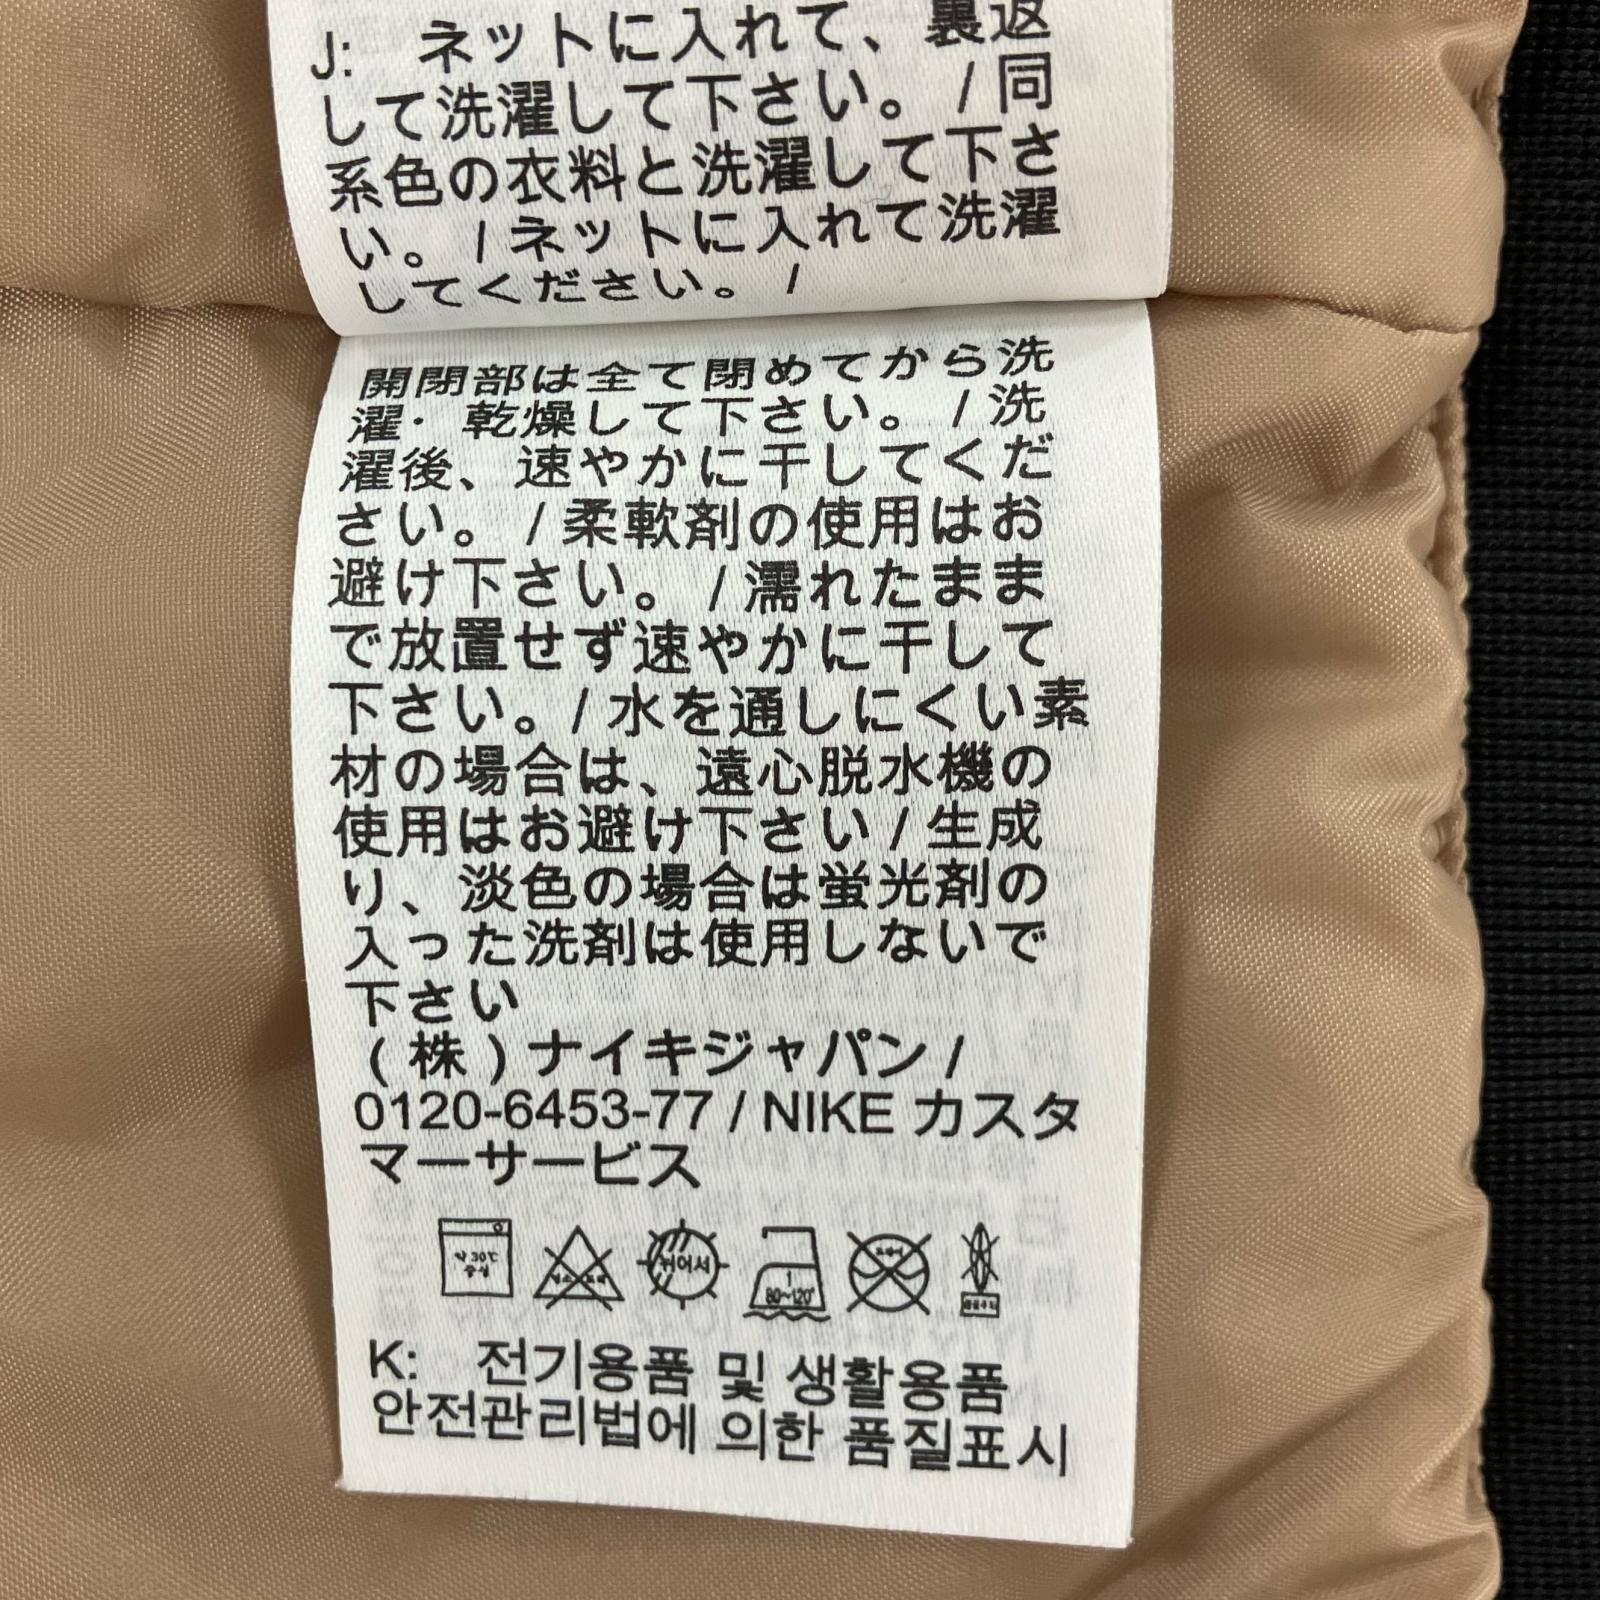 J: ネットに入れて、裏返
して洗濯して下さい。 / 同
系色の衣料と洗濯して下さ
い。 / ネットに入れて洗濯
してください。 /
開閉部は全て閉めてから洗
濯・乾燥して下さい。 / 洗
濯後、速やかに干してくだ
さい。 / 柔軟剤の使用はお
避け下さい。 / 濡れたまま
で放置せず速やかに干して
下さい。/ 水を通しにくい素
材の場合は、遠心脱水機の
使用はお避け下さい / 生成
り、淡色の場合は蛍光剤の
入った洗剤は使用しないで
下さい
( 株 ) ナイキジャパン /
0120-6453-77 / NIKE カスタ
マーサービス
약 30℃
중성
뉘어서
1
80~120°
K: 전기용품 및 생활용품
안전관리법에 의한 품질표시